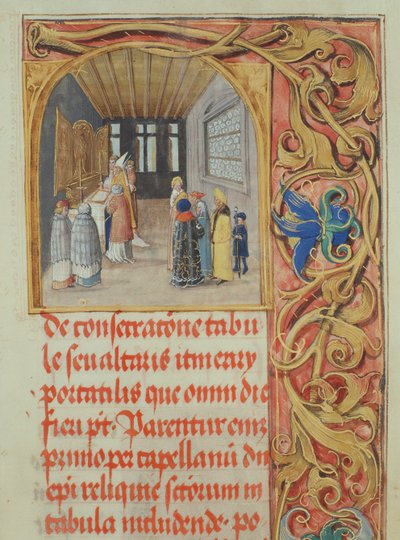 de consecracōne tabu
le seu altaris itinerarij
portatilis que omni die
fieri pt̄. Parentur enī
primo per capellanū dn̄i
epi reliquie sctōrum in
tabula includende. po-